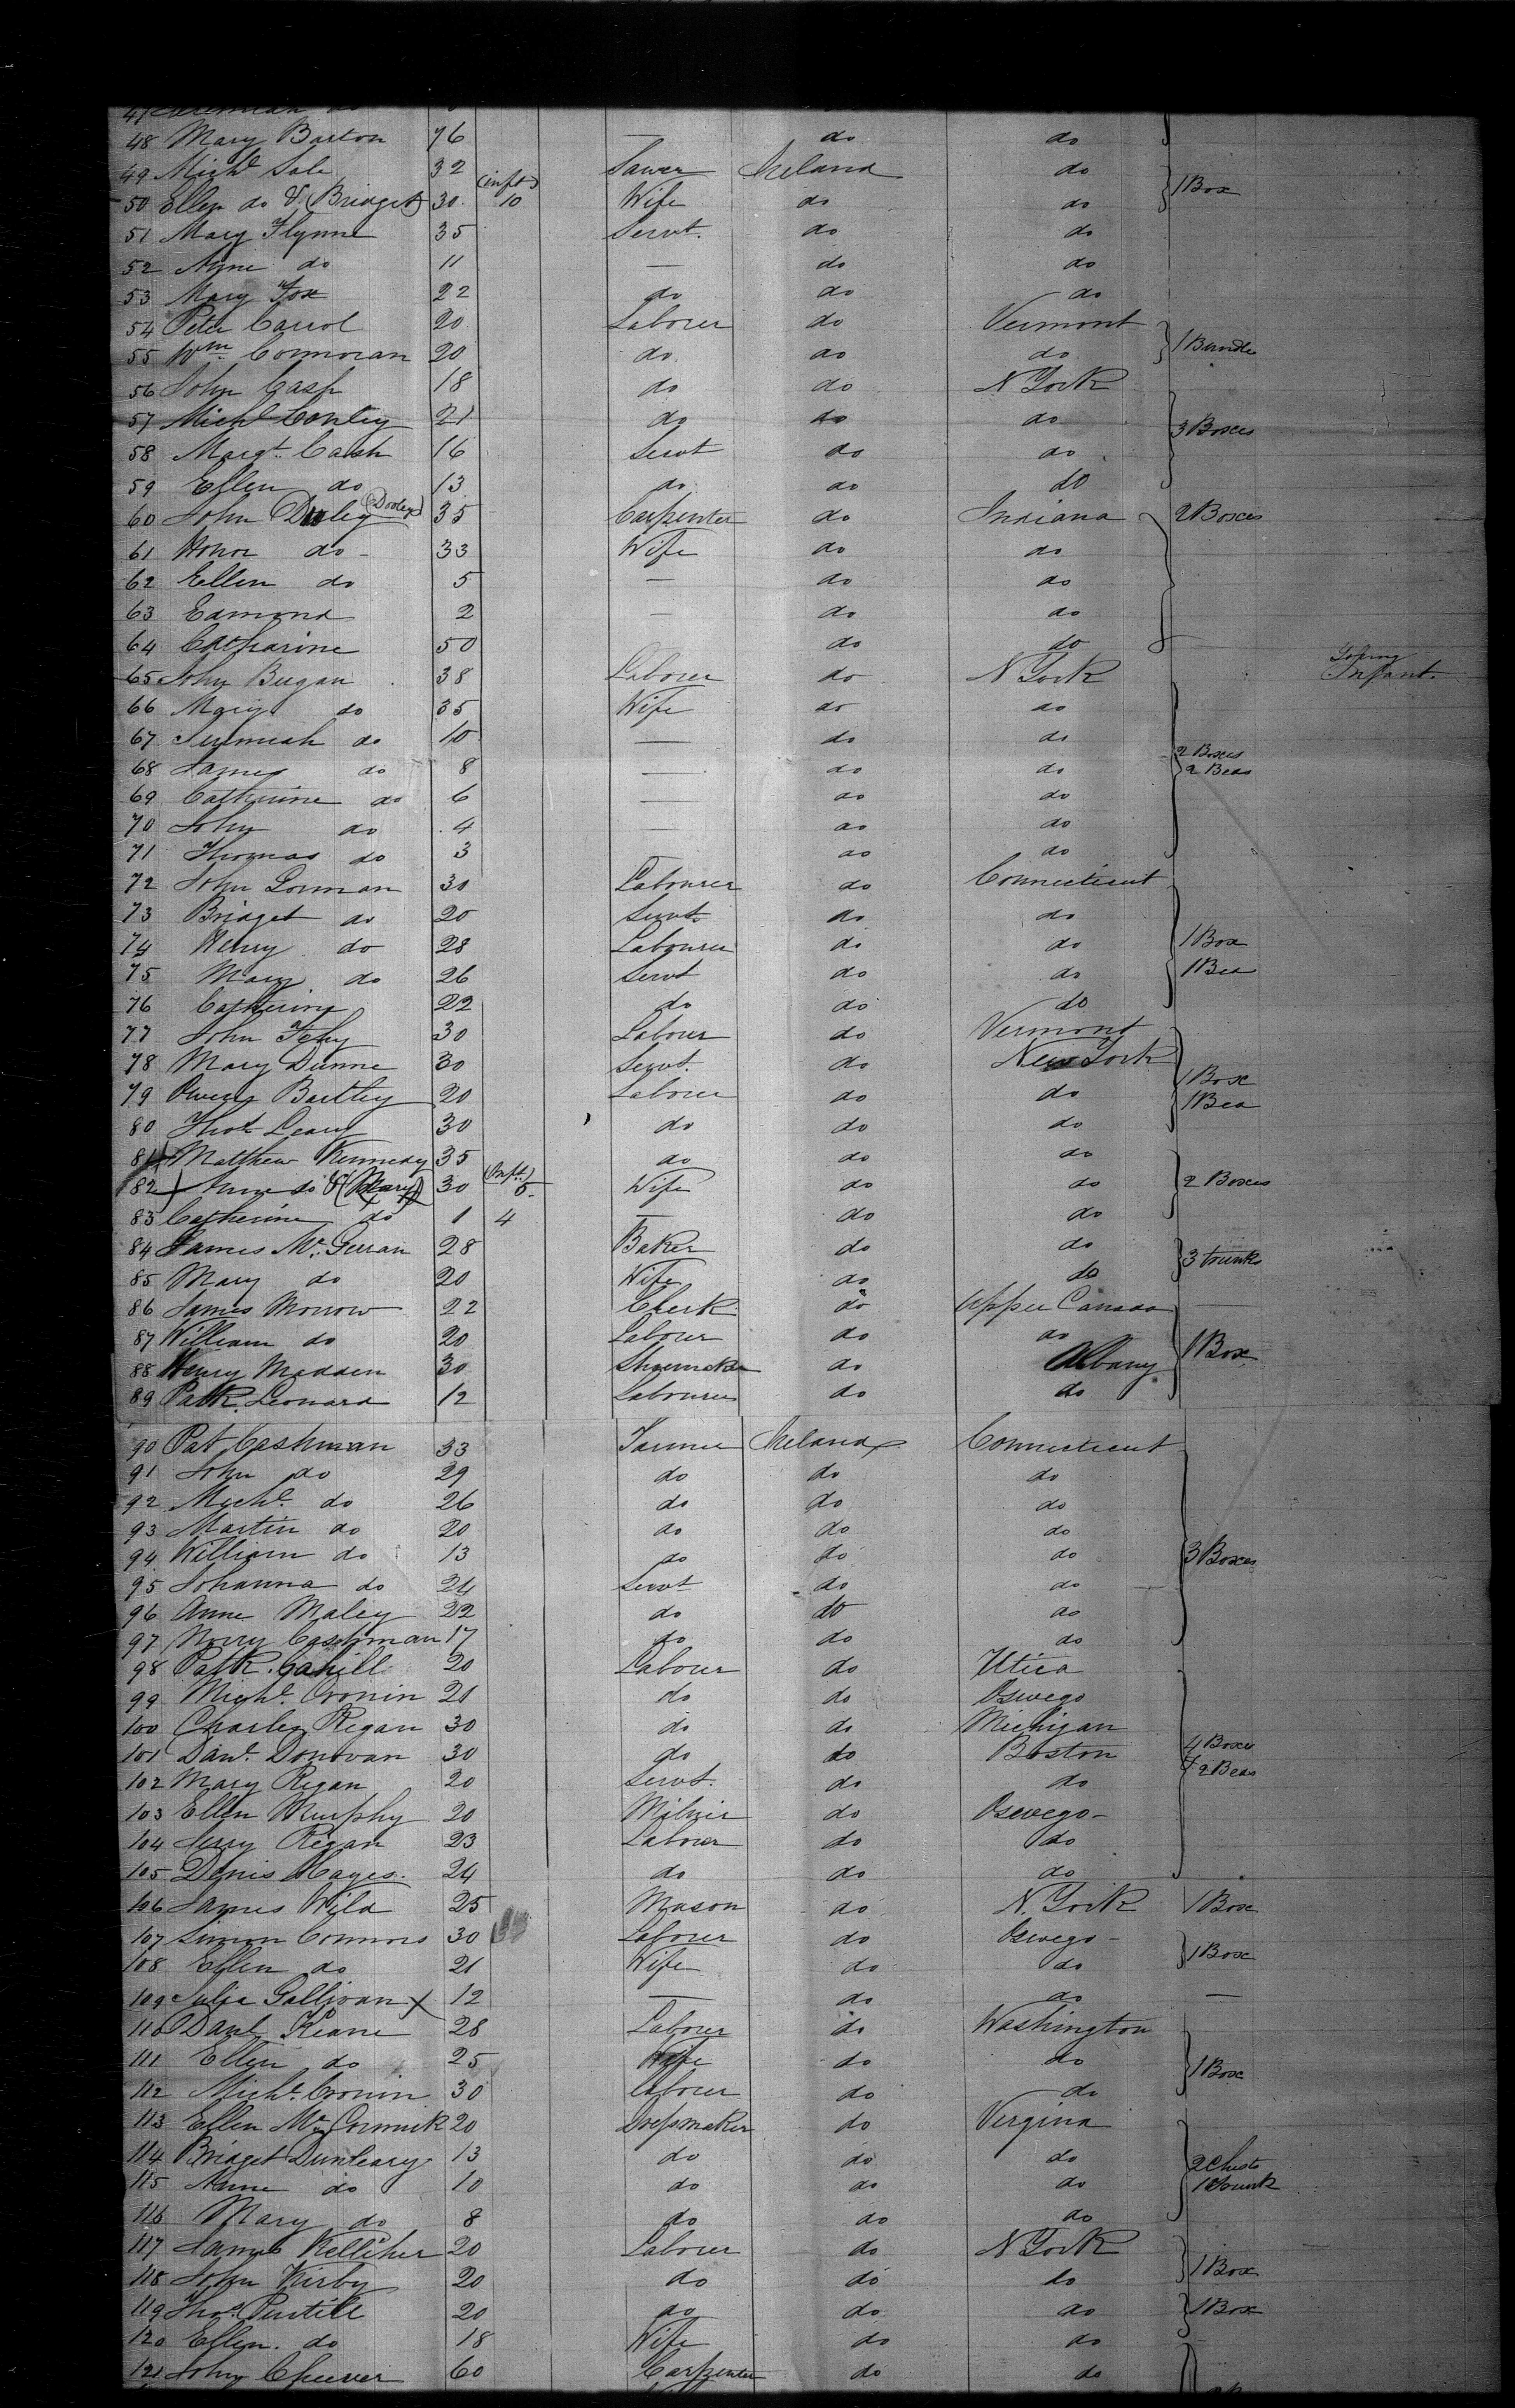 48 Mary Barton 76 — do do
49 Michl Sale 32 Sawer Ireland do
50 Ellen do & (Bridget) 30 (inft) 10 Wife do do } 1 Box
51 Mary Flynne 35 Servt. do do
52 Anne do 11 — do do
53 Mary Fox 22 do do do
54 Peter Carrol 20 Laborer do Vermont
55 Wm Connoran 20 do do do } 1 Bundle
56 John Cash 18 do do N York
57 Michl Conley 21 do do do } 3 Boxes
58 Margt. Cash 16 Servt do do
59 Ellen do 13 do do do
60 John Duley (Dooley) 35 Carpenter do Indiana 2 Boxes
61 Honor do 33 Wife do do
62 Ellen do 5 — do do
63 Edmond 2 — do do
64 Catharine 50 do do
65 John Bugan 38 Laborer do N York Infant
66 Mary do 35 Wife do do
67 Jeremiah do 10 — do do
68 James do 8 — do do } 2 Boxes 2 Beds
69 Catherine do 6 — do do
70 John do 4 — do do
71 Thomas do 3 do do
72 John Gorman 30 Labourer do Connecticut
73 Bridget do 20 Servt. do do
74 Henry do 28 Labourer do do 1 Box
75 Mary do 26 Servt do do 1 Bed
76 Catherine 22 do do do
77 John Fehy 30 Labour do Vermont
78 Mary Dunne 30 Servt. do New York
79 Owen Bartley 20 Laborer do do 1 Box 1 Bed
80 Thos Leary 30 do do do
81 Matthew Kennedy 35 do do do
82 Anne do & (Mary) 30 (Inft) 5 Wife do do 2 Boxes
83 Catherine do 1 4 — do do
84 James Mc Gerran 28 Baker do do } 3 trunks
85 Mary do 20 Wife do do
86 James Morrow 22 Clerk do Upper Canada —
87 William do 20 Labour do do } 1 Box
88 Henry Madden 30 Shoemaker do Albany
89 Patk. Leonard 12 Labourer do do
90 Pat Cashman 33 Farmer Ireland Connecticut
91 John do 29 do do do
92 Michl. do 26 do do do
93 Martin do 20 do do do
94 William do 13 do do do } 3 Boxes
95 Johanna do 24 Servt do do
96 Anne Maley 22 do do do
97 Norry Cashman 17 do do do
98 Patk. Cahill 20 Labour do Utica
99 Michl. Cronin 21 do do Oswego
100 Charles Regan 30 do do Michigan
101 Danl. Donovan 30 do do Boston 4 Boxes
102 Mary Regan 20 Servt. do do & 2 Beds
103 Ellen Murphy 20 do Oswego -
104 Jerry Regan 23 Labour do do
105 Denis Hayes. 24 do do do
106 James Wyld 25 Mason do N. York 1 Box
107 Simon Connors 30 Laborer do Oswego -
108 Ellen do 21 Wife do do } 1 Box
109 Julia Sullivan x 12 — do do —
110 Danl. Keane 28 Laborer do Washington
111 Ellen do 25 Wife do do } 1 Box
112 Michl. Cronin 30 Laborer do do
113 Ellen Mc Cormick 20 Dressmaker do Vergina
114 Bridget Dunleary 13 do do do 2 Chests
115 Anne do 10 do do do 1 Trunk
116 Mary do 8 do do do
117 James Kelliher 20 Laborer do N York
118 John Kirby 20 do do do } 1 Box
119 Thos. Purtill 20 do do do } 1 Box
120 Ellen. do 18 Wife do do
121 John Cheever 60 Carpenter do do